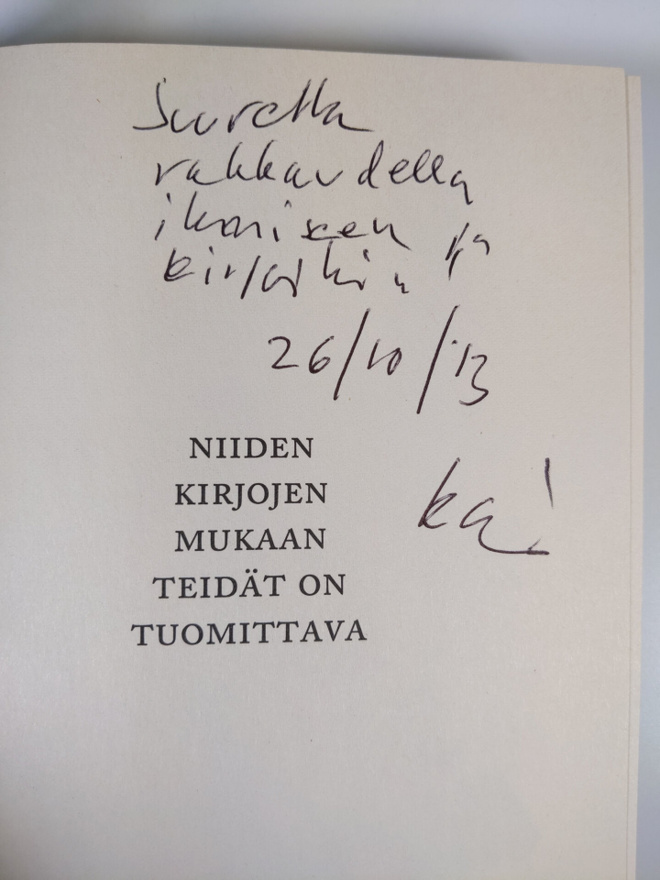 Suurella
rakkaudella
ja
26/10/'13
NIIDEN
KIRJOJEN
MUKAAN
TEIDÄT ON
TUOMITTAVA
Kai